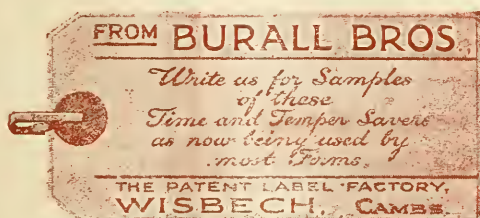 FROM BURALL BROS.
Write us for Samples
of these
Time and Temper Savers
as now being used by
most Firms.
THE PATENT LABEL FACTORY,
WISBECH, CAMBS.